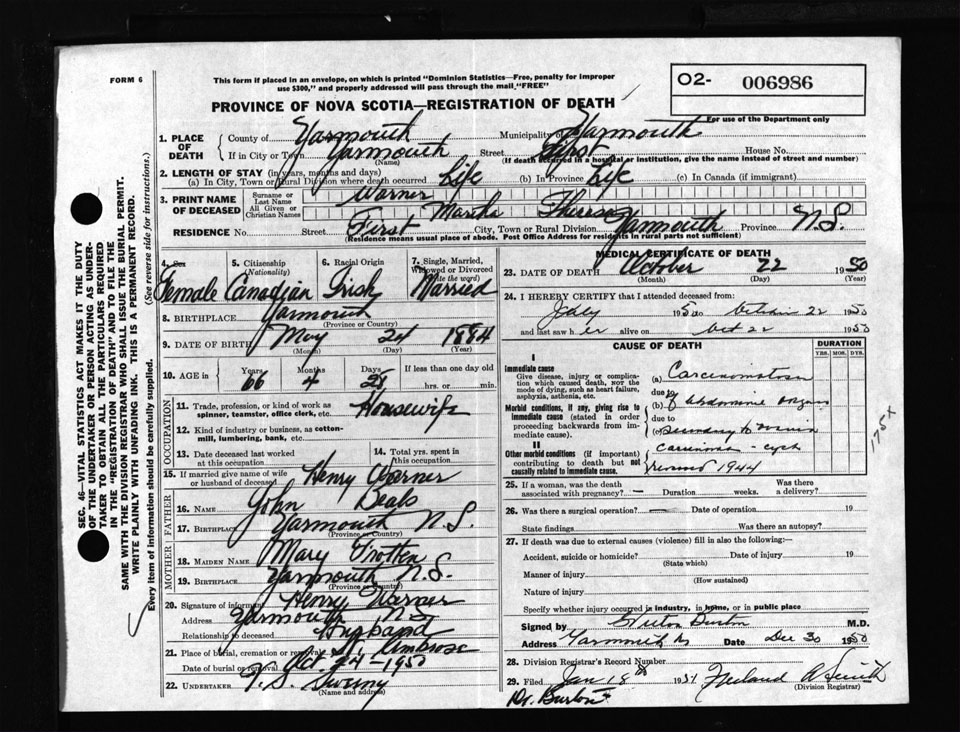 FORM 6
This form if placed in an envelope, on which is printed "Dominion Statistics—Free, penalty for improper
use $300," and properly addressed will pass through the mail "FREE"
PROVINCE OF NOVA SCOTIA—REGISTRATION OF DEATH
O2- 006986
For use of the Department only
SEC. 46—VITAL STATISTICS ACT MAKES IT THE DUTY
OF THE UNDERTAKER OR PERSON ACTING AS UNDER-
TAKER TO OBTAIN ALL THE PARTICULARS REQUIRED
IN THE "REGISTRATION OF DEATH" AND TO FILE THE
SAME WITH THE DIVISION REGISTRAR WHO SHALL ISSUE THE BURIAL PERMIT.
WRITE PLAINLY WITH UNFADING INK. THIS IS A PERMANENT RECORD.
Every item of information should be carefully supplied. (See reverse side for instructions.)
1. PLACE OF DEATH County of Yarmouth Municipality of Yarmouth
If in City or Town Yarmouth Street First House No.
(Name) (If death occurred in a hospital or institution, give the name instead of street and number)
2. LENGTH OF STAY (in years, months and days)
(a) In City, Town or Rural Division where death occurred Life (b) In Province Life (c) In Canada (if immigrant)
3. PRINT NAME OF DECEASED Surname or Last Name Warner
All Given or Christian Names Martha Theresa
RESIDENCE No. Street First City, Town or Rural Division Yarmouth Province N.S.
(Residence means usual place of abode. Post Office Address for residents in rural parts not sufficient)
4. Sex Female
5. Citizenship (Nationality) Canadian
6. Racial Origin Irish
7. Single, Married, Widowed or Divorced (Write the word) Married
8. BIRTHPLACE Yarmouth
(Province or Country)
9. DATE OF BIRTH May 24 1884
(Month) (Day) (Year)
10. AGE in Years Months Days If less than one day old
66 4 28 hrs. or min.
OCCUPATION
11. Trade, profession, or kind of work as spinner, teamster, office clerk, etc. Housewife
12. Kind of industry or business, as cotton-mill, lumbering, bank, etc.
13. Date deceased last worked at this occupation
14. Total yrs. spent in this occupation
15. If married give name of wife or husband of deceased Henry Warner
FATHER
16. NAME John Deals
17. BIRTHPLACE Yarmouth N.S.
(Province or Country)
MOTHER
18. MAIDEN NAME Mary
19. BIRTHPLACE Yarmouth N.S.
(Province or Country)
20. Signature of informant Henry Warner
Address Yarmouth N.S.
Relationship to deceased Husband
21. Place of burial, cremation or removal St. Ambrose
Date of burial or removal Oct. 24-1950
22. UNDERTAKER V. S. Sweeny
(Name and address)
MEDICAL CERTIFICATE OF DEATH
23. DATE OF DEATH October 22 1950
(Month) (Day) (Year)
24. I HEREBY CERTIFY that I attended deceased from:
July 1950 to October 22 1950
and last saw her alive on Oct 22 1950
CAUSE OF DEATH
DURATION
YRS. MOS. DYS.
I
Immediate cause
Give disease, injury or complication which caused death, NOT the mode of dying, such as heart failure, asphyxia, asthenia, etc.
(a) Carcinomatosis
due to
Morbid conditions, if any, giving rise to immediate cause (stated in order proceeding backwards from immediate cause).
(b) of abdominal organs
due to
(c) Secondary to
II
Other morbid conditions (if important) contributing to death but not causally related to immediate cause.
carcinoma cyst
removed 1944
175x
25. If a woman, was the death associated with pregnancy? — Duration weeks. Was there a delivery?
26. Was there a surgical operation? — Date of operation 19
State findings Was there an autopsy?
27. If death was due to external causes (violence) fill in also the following:—
Accident, suicide or homicide? Date of injury 19
(State which)
Manner of injury
(How sustained)
Nature of injury
Specify whether injury occurred in industry, in home, or in public place
Signed by Burton M.D.
Address Yarmouth Date Dec 30 1950
28. Division Registrar's Record Number
29. Filed Jan 18th 1951 A Smith
(Division Registrar)
Dr. Burton